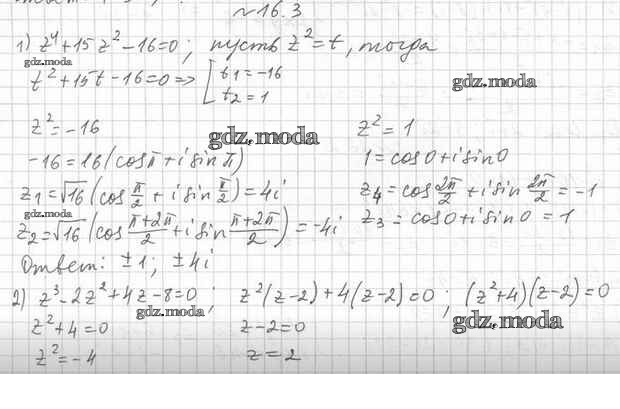 №16.3
1) z⁴+15z²-16=0; пусть z²=t, тогда
gdz.moda
t²+15t-16=0 => [ t1=-16
t2=1
gdz.moda
z²=-16 z²=1
gdz.moda
-16=16(cosπ+i sinπ) 1=cos0+i sin0
z1=√16(cos π/2 + i sin π/2)=4i z4=cos 2π/2 + i sin 2π/2 = -1
gdz.moda
z2=√16(cos (π+2π)/2 + i sin (π+2π)/2) = -4i z3=cos0+i sin0 = 1
Ответ: ±1; ±4i
2) z³-2z²+4z-8=0; z²(z-2)+4(z-2)=0; (z²+4)(z-2)=0
gdz.moda
gdz.moda
z²+4=0 z-2=0
z²=-4 z=2